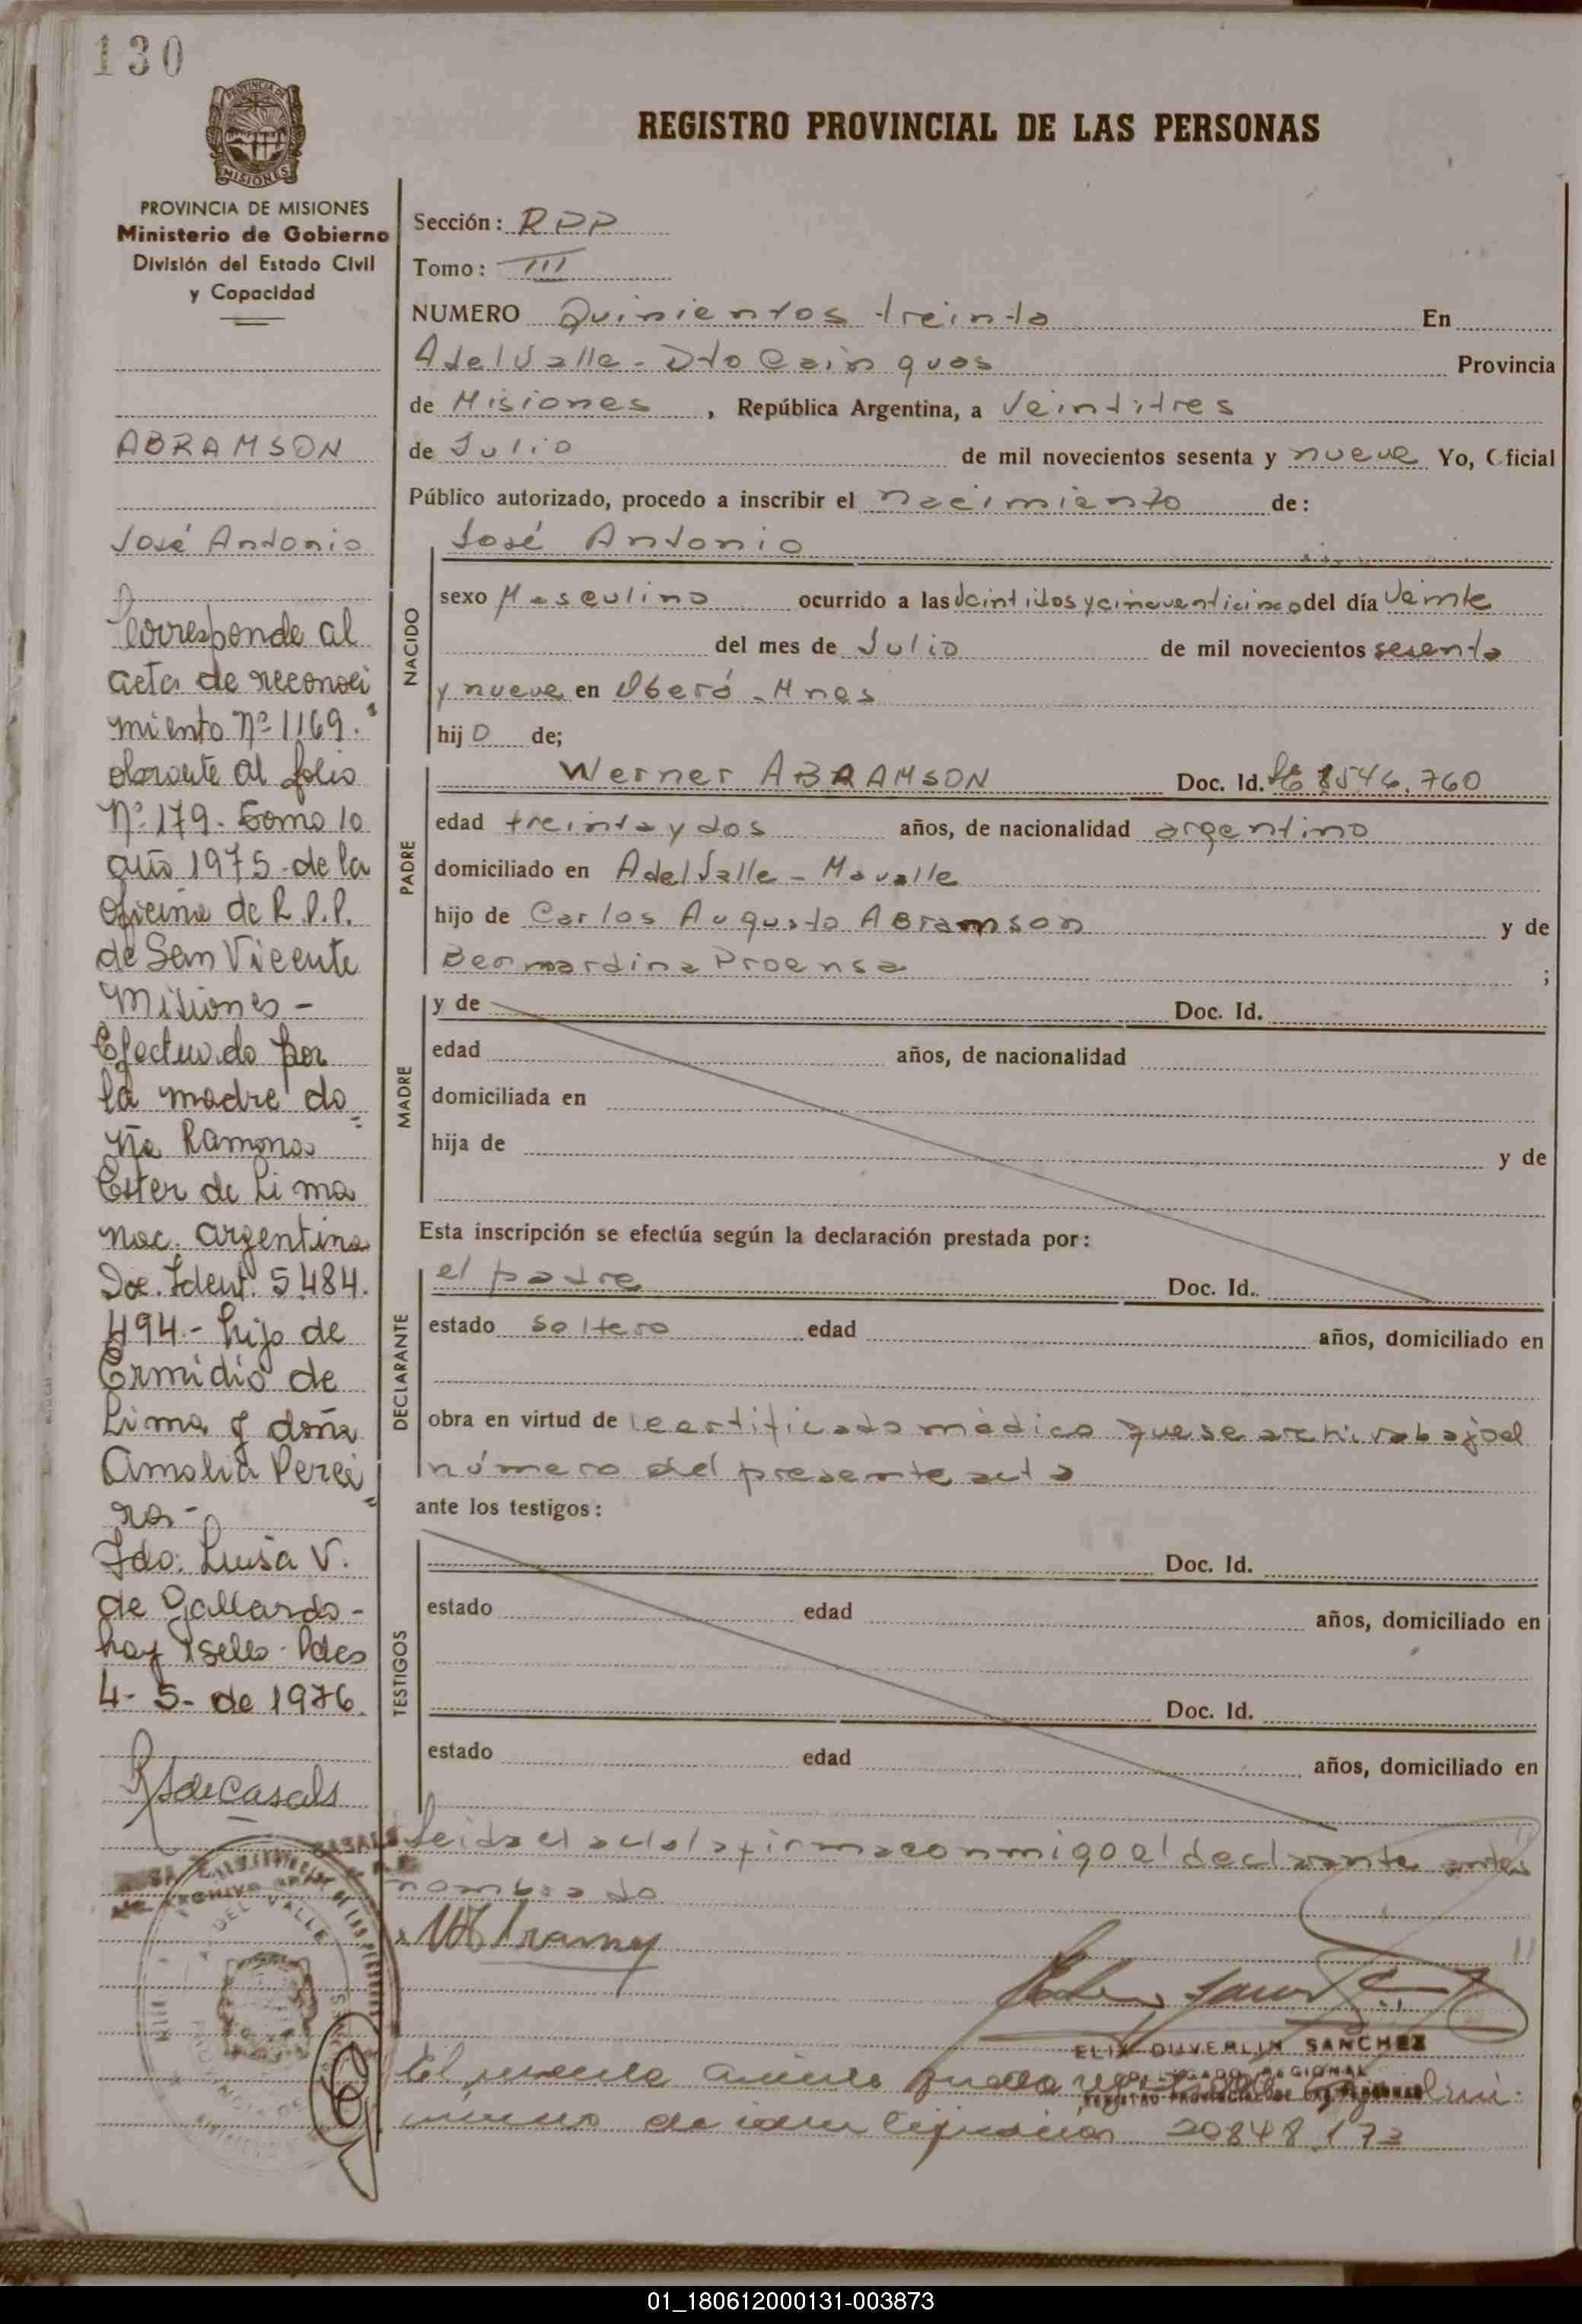 130
PROVINCIA DE MISIONES
PROVINCIA DE MISIONES
Ministerio de Gobierno
División del Estado Civil
y Capacidad
ABRAMSON
José Antonio
Corresponde al
acta de reconoci
miento Nº 1169.
obrante al folio
Nº 179. Tomo 10
año 1975 de la
oficina de R.P.P.
de San Vicente
Misiones -
Efectuado por
la madre do=
ña Ramona
Ester de Lima
nac. argentina
Doc. Ident. 5484.
494.- hijo de
Ermidio de
Lima y doña
Amalia Perei=
ra-
Fdo: Luisa V.
de Gallardo-
hay 1 sello. Pdas
4- 5- de 1976.
REGISTRO PROVINCIAL DE LAS PERSONAS
Sección: RPP
Tomo: III
NUMERO Quinientos treinta En
A del Valle - Dto Cainguas Provincia
de Misiones, República Argentina, a Veintitres
de Julio de mil novecientos sesenta y nueve Yo, Oficial
Público autorizado, procedo a inscribir el nacimiento de:
José Antonio
NACIDO
sexo Masculino ocurrido a las veintidos y cincuenticinco del día veinte
del mes de Julio de mil novecientos sesenta
y nueve en Oberá - Mnes
hijo de;
PADRE
Werner ABRAMSON Doc. Id. 8546.760
edad treinta y dos años, de nacionalidad argentino
domiciliado en A del Valle - Movalle
hijo de Carlos Augusto ABramson y de
Bernardina Proensa ;
MADRE
y de Doc. Id.
edad años, de nacionalidad
domiciliada en
hija de y de
Esta inscripción se efectúa según la declaración prestada por:
DECLARANTE
el padre Doc. Id.
estado soltero edad años, domiciliado en
obra en virtud de certificado médico que se archiva bajo el
número del presente acta
ante los testigos:
TESTIGOS
Doc. Id.
estado edad años, domiciliado en
Doc. Id.
estado edad años, domiciliado en
Leida el acta la firma conmigo el declarante antes
nombrado
ELIX DUVERLIN SANCHEZ
DELEGADO REGIONAL
REGISTRO PROVINCIAL DE LAS PERSONAS
DEL VALLE
número de identificación 20848.173
01_180612000131-003873